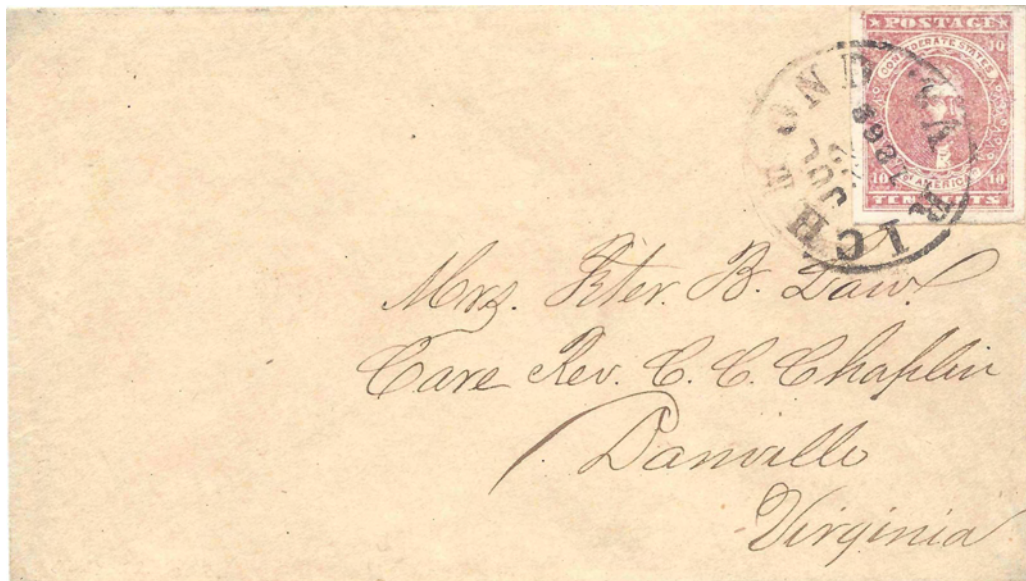 ★ POSTAGE ★
10
CONFEDERATE STATES
OF AMERICA
10 10
TEN CENTS
RICHMOND VA.
JUL
1862
Mrs. Peter. B. Law.
Care Rev. C. C. Chaplin
Danville
Virginia